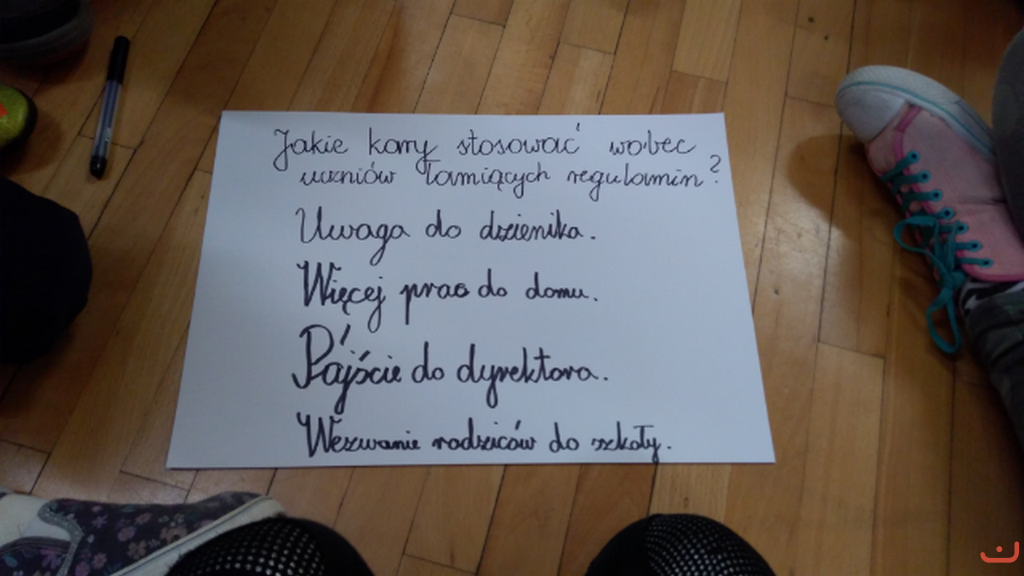 Jakie kary stosować wobec
uczniów łamiących regulamin?
Uwaga do dziennika.
Więcej prac do domu.
Pójście do dyrektora.
Wezwanie rodziców do szkoły.